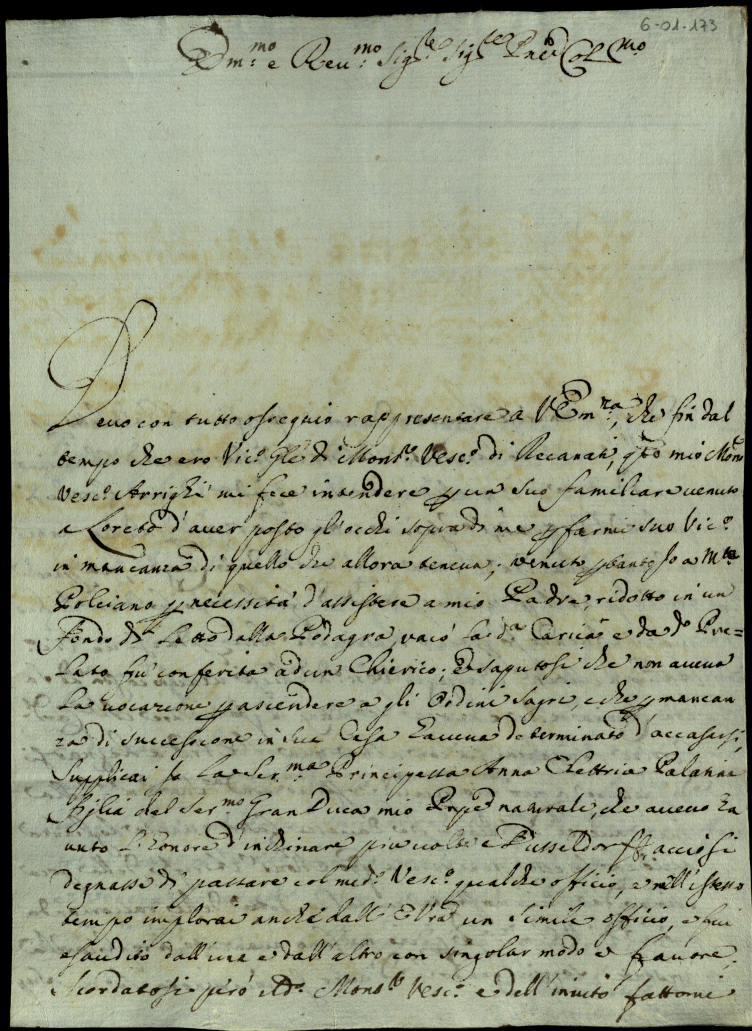 6-01-173
Em:mo e Reu:mo Sig:re Sig:re Pne Col:mo
Deuo con tutto ossequio rappresentare a VEm:za, che fin dal
tempo che ero Vic:o Gle di Mons:r Vesc:o di Recanati, q:to mio Mons:r
Vesc:o Arrighi mi fece intendere p un suo familiare uenuto
a Loreto d'auer posto gl'occhi sopra di me p farmi suo Vic:o
in mancanza di quello che allora teneua; uenuto ptanto Io a M:te
Polciano p necessità d'assistere a mio Padre, ridotto in un
Fondo di Letto dalla Podagra, uacò la d:a Carica e da d:o Pre=
lato fù conferita ad un Chierico; E saputosi che non aueua
la uocazione p ascendere a gli Ordini sagri, e che p mancan
za di successione in sua Casa l'aueua determinato d'accasarsi,
Supplicai la Ser:ma Principessa Anna Elettrice Palatina
Figlia del Ser:mo Gran Duca mio Pnpe naturale, che aueuo ha
uuto l'honore d'inchinare più uolte a Dusseldorff acciò si
degnasse di passare col med:o Vesc:o qualche officio, e nell'istesso
tempo implorai anche dall' E.V.ra un simile officio, e fui
esaudito dall'una e dall'altro con singolar modo e fauore;
Scordatosi però il d:o Mons:r Vesc:o e dell'inuito fattomi